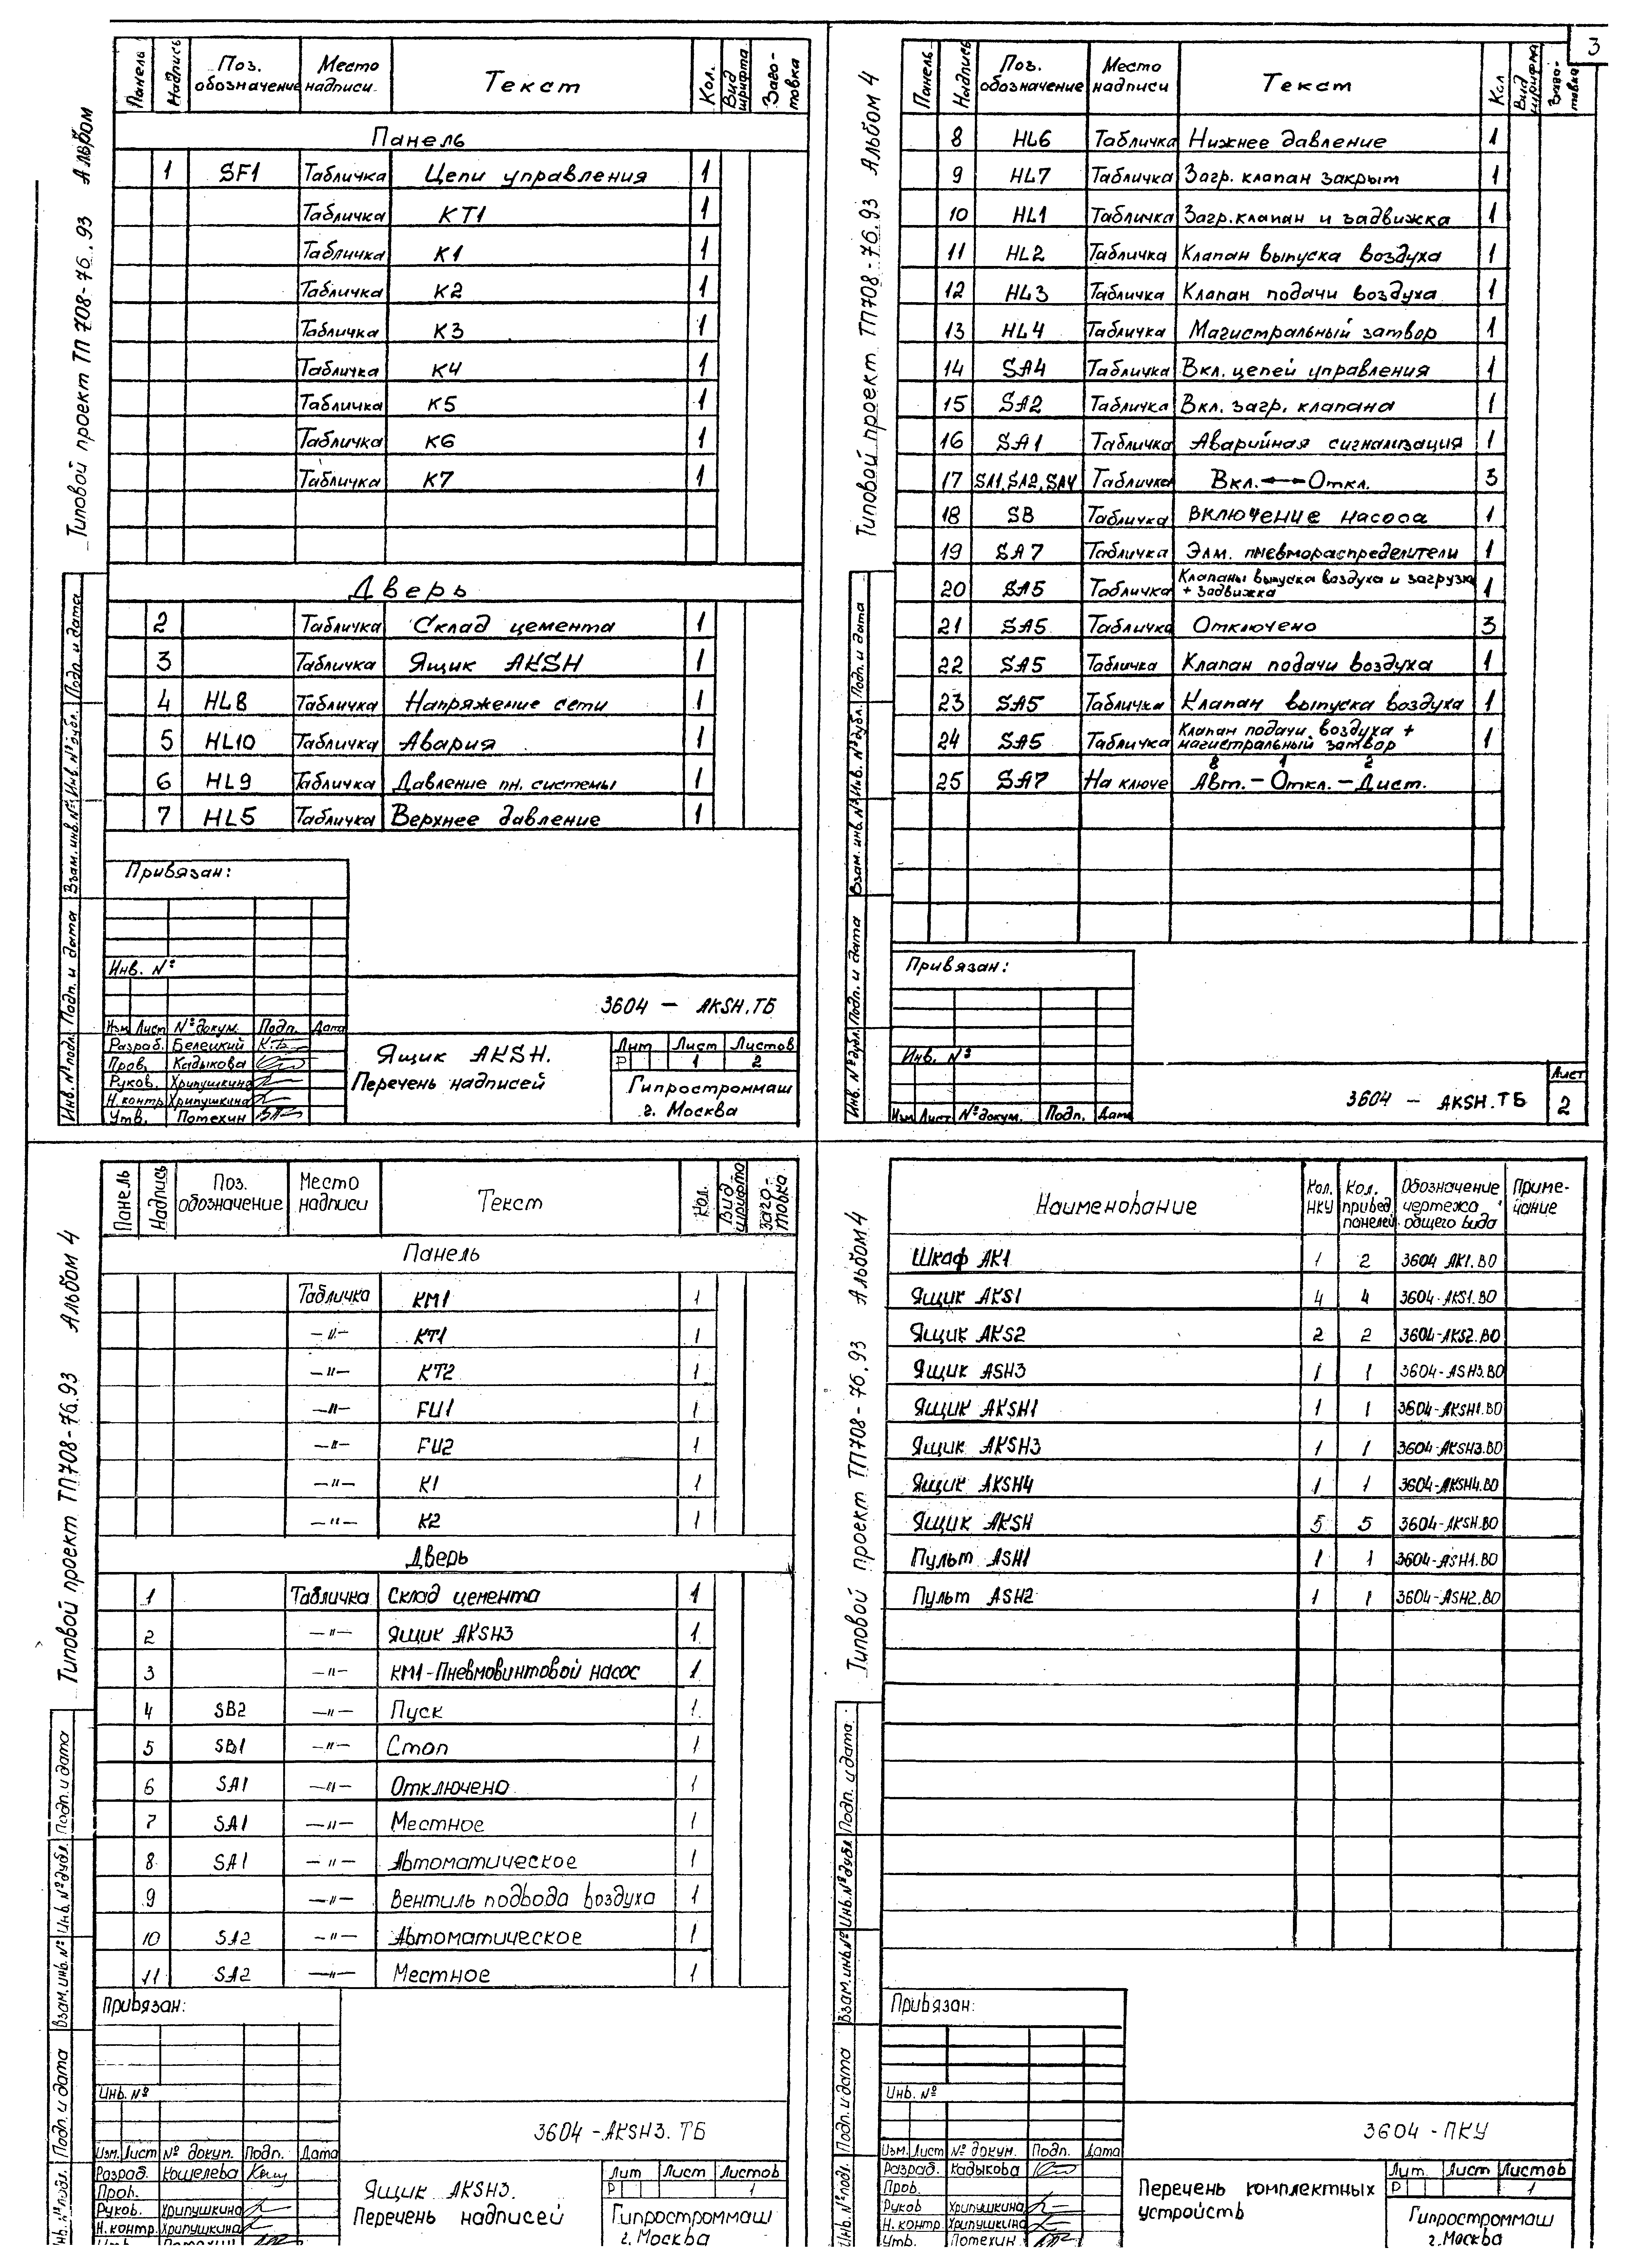 3
Типовой проект ТП 708-76.93 Альбом
Панель Надпись Поз. обозначение Место надписи Текст Кол. Вид шрифта Заготовка
Панель
1 SF1 Табличка Цепи управления 1
Табличка КТ1 1
Табличка К1 1
Табличка К2 1
Табличка К3 1
Табличка К4 1
Табличка К5 1
Табличка К6 1
Табличка К7 1
Дверь
2 Табличка Склад цемента 1
3 Табличка Ящик AKSH 1
4 HL8 Табличка Напряжение сети 1
5 HL10 Табличка Авария 1
6 HL9 Табличка Давление пн. системы 1
7 HL5 Табличка Верхнее давление 1
Привязан:
Инв. №
3604 – AKSH.ТБ
Изм Лист № докум. Подп. Дата
Разраб. Белецкий
Пров. Кадыкова
Руков. Хрипушкина
Н.контр Хрипушкина
Утв. Потехин
Ящик AKSH.
Перечень надписей
Лит Лист Листов
Р 1 2
Гипростроммаш
г. Москва
Инв. № подл. Подп. и дата Взам. инв. № Инв. № дубл. Подп. и дата
Типовой проект ТП708-76.93 Альбом 4
Панель Надпись Поз. обозначение Место надписи Текст Кол Вид шрифта Заготовка
8 HL6 Табличка Нижнее давление 1
9 HL7 Табличка Загр. клапан закрыт 1
10 HL1 Табличка Загр.клапан и задвижка 1
11 HL2 Табличка Клапан выпуска воздуха 1
12 HL3 Табличка Клапан подачи воздуха 1
13 HL4 Табличка Магистральный затвор 1
14 SA4 Табличка Вкл. цепей управления 1
15 SA2 Табличка Вкл. загр. клапана 1
16 SA1 Табличка Аварийная сигнализация 1
17 SA1, SA2, SA4 Табличка Вкл.←→Откл. 3
18 SB Табличка Включение насоса 1
19 SA7 Табличка Элм. пневмораспределители 1
20 SA5 Табличка Клапаны выпуска воздуха и загрузки + задвижка 1
21 SA5 Табличка Отключено 3
22 SA5 Табличка Клапан подачи воздуха 1
23 SA5 Табличка Клапан выпуска воздуха 1
24 SA5 Табличка Клапан подачи воздуха + магистральный затвор 1
8 1 2
25 SA7 На ключе Авт. – Откл. – Дист.
Привязан:
Инв. №
Изм Лист № докум. Подп. Дата
3604 – AKSH.ТБ
Лист
2
Инв. № дубл. Подп. и дата Взам. инв. № Инв. № дубл. Подп. и дата
Типовой проект ТП708-76.93 Альбом 4
Панель Надпись Поз. обозначение Место надписи Текст Кол. Вид шрифта заготовка
Панель
Табличка КМ1 1
–"– КТ1 1
–"– КТ2 1
–"– FU1 1
–"– FU2 1
–"– К1 1
–"– К2 1
Дверь
1 Табличка Склад цемента 1
2 –"– Ящик AKSH3 1
3 –"– КМ1-Пневмовинтовой насос 1
4 SB2 –"– Пуск 1
5 SB1 –"– Стоп 1
6 SA1 –"– Отключено 1
7 SA1 –"– Местное 1
8 SA1 –"– Автоматическое 1
9 –"– Вентиль подвода воздуха 1
10 SA2 –"– Автоматическое 1
11 SA2 –"– Местное 1
Привязан:
Инв. №
3604 -AKSH3. ТБ
Изм. Лист № докум. Подп. Дата
Разраб. Кошелева
Пров.
Руков. Хрипушкина
Н.контр. Хрипушкина
Утв. Потехин
Ящик AKSH3.
Перечень надписей
Лит Лист Листов
Р 1
Гипростроммаш
г.Москва
Инв. № подл. Подп. и дата Взам. инв. № Инв. № дубл. Подп. и дата
Типовой проект ТП708-76.93 Альбом 4
Наименование Кол. НКУ Кол. привед. панелей Обозначение чертежа общего вида Примечание
Шкаф AK1 1 2 3604 AK1.ВО
Ящик AKS1 4 4 3604-AKS1.ВО
Ящик AKS2 2 2 3604-AKS2.ВО
Ящик ASH3 1 1 3604-ASH3.ВО
Ящик AKSH1 1 1 3604-AKSH1.ВО
Ящик AKSH3 1 1 3604-AKSH3.ВО
Ящик AKSH4 1 1 3604-AKSH4.ВО
Ящик AKSH 5 5 3604-AKSH.ВО
Пульт ASH1 1 1 3604-ASH1.ВО
Пульт ASH2 1 1 3604-ASH2.ВО
Привязан:
Инв. №
3604 -ПКУ
Изм. Лист № докум. Подп. Дата
Разраб. Кадыкова
Пров.
Руков Хрипушкина
Н. контр Хрипушкина
Утв. Потехин
Перечень комплектных
устройств
Лит. Лист Листов
Р 1
Гипростроммаш
г.Москва
Инв. № подл. Подп. и дата Взам. инв. № Инв. № дубл. Подп. и дата